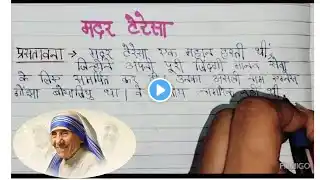 मदर टेरेसा
प्रस्तावना → मदर टेरेसा एक महान हस्ती थी,
जिन्होंने अपनी पूरी जिंदगी मानव सेवा
के लिए समर्पित कर दी। उनका असली नाम
था। वे